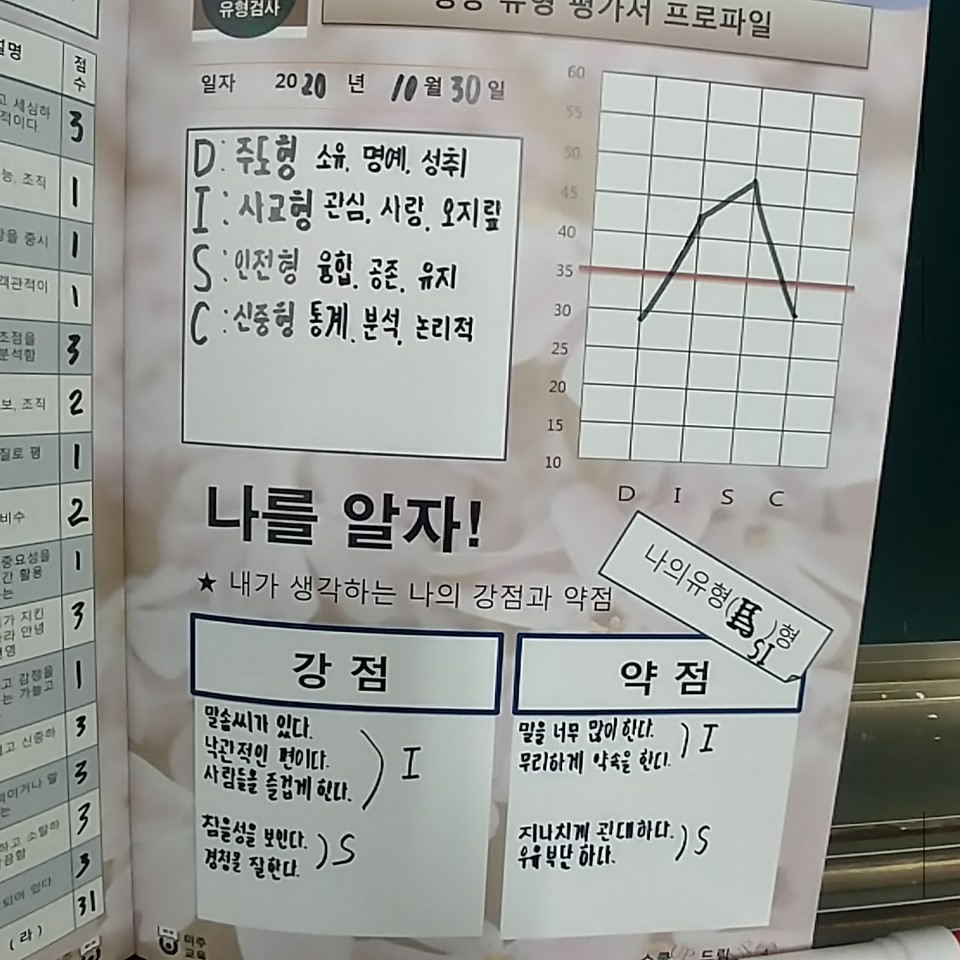 설명
점수
고 세심하
적이다.
3
능, 조직
1
상을 중시
1
객관적이
1
초점을
분석함
3
보, 조직
2
질로 평
1
비수
2
중요성을
간 활용
는
1
가 지킨
라 안녕
3
고 감정을
는 가늘고
1
고 신중하
3
3
는
하고 소탈하
3
3
되어 있다
31
(라)
유형검사
유형 평가서 프로파일
일자 2020 년 10월 30일
D : 주도형 소유, 명예, 성취
I : 사교형 관심, 사랑, 오지랖
S : 안전형 융합, 공존, 유지
C : 신중형 통계, 분석, 논리적
60
55
50
45
40
35
30
25
20
15
10
D I S C
나를 알자!
★ 내가 생각하는 나의 강점과 약점
나의유형( )형
SI
강 점
말솜씨가 있다.
낙관적인 편이다.
사람들을 즐겁게 한다.
) I
침을성을 보인다.
경청을 잘한다.
) S
약 점
말을 너무 많이 한다.
무리하게 약속을 한다.
) I
지나치게 관대하다.
우유부단 하다.
) S
미주
교육